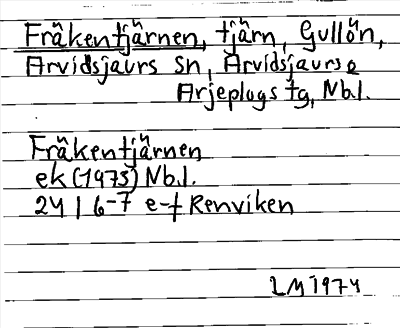 Fräkentjärnen, tjärn, Gullön,
Arvidsjaurs sn, Arvidsjaurs o
Arjeplogs tg, Nb.l.
Fräkentjärnen
ek (1973) Nb.l.
24 I 6-7 e-f Renviken
LM 1974